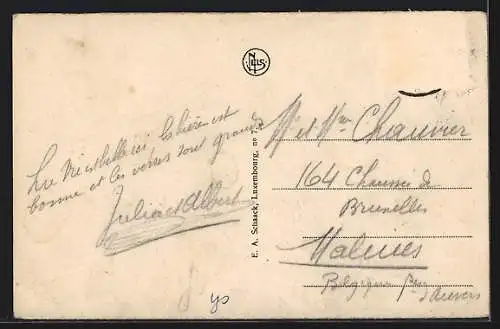 NELS
La vie est belle ici la bière est
bonne et les verres sont grands
Julia et Albert
E. A. Schaack, Luxembourg, no 7
Mr et Mme Chauvier
164 Chaussée de
Bruxelles
Malines
Belgique
d'Anvers
ys